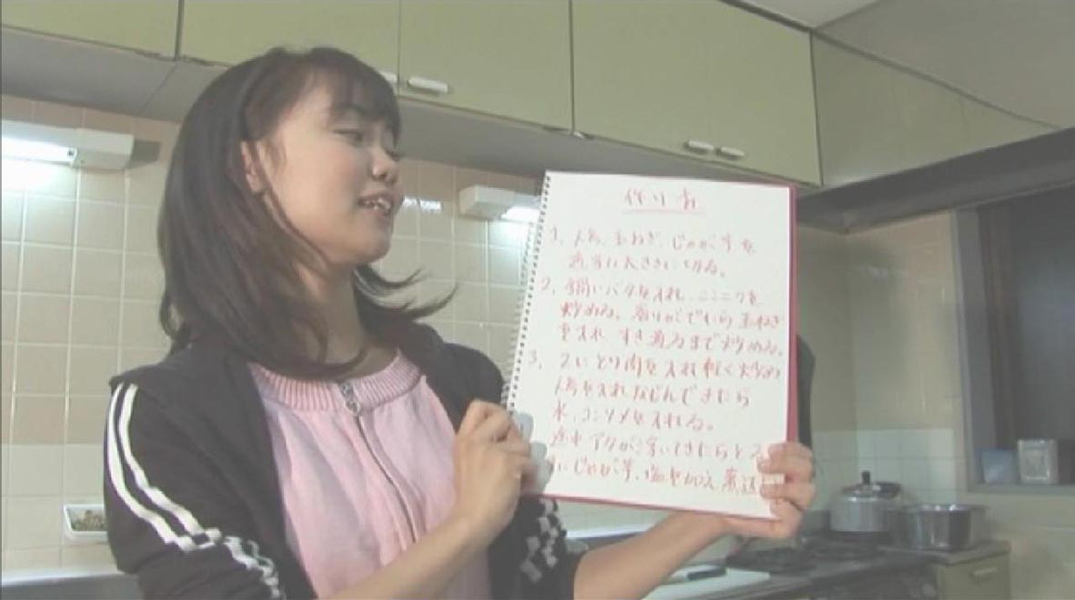 作り方
1. 人参、玉ねぎ、じゃが芋を
適当に大きさに切る。
2. 鍋にバターを入れ、ニンニクを
炒める。香りがでたら玉ねぎ
を入れ すき通るまで炒める。
3. 2にとり肉を入れ軽く炒め
人参を入れなじんできたら
水、コンソメを入れる。
途中アクが浮いてきたらとる
じゃが芋、塩を加え、煮込